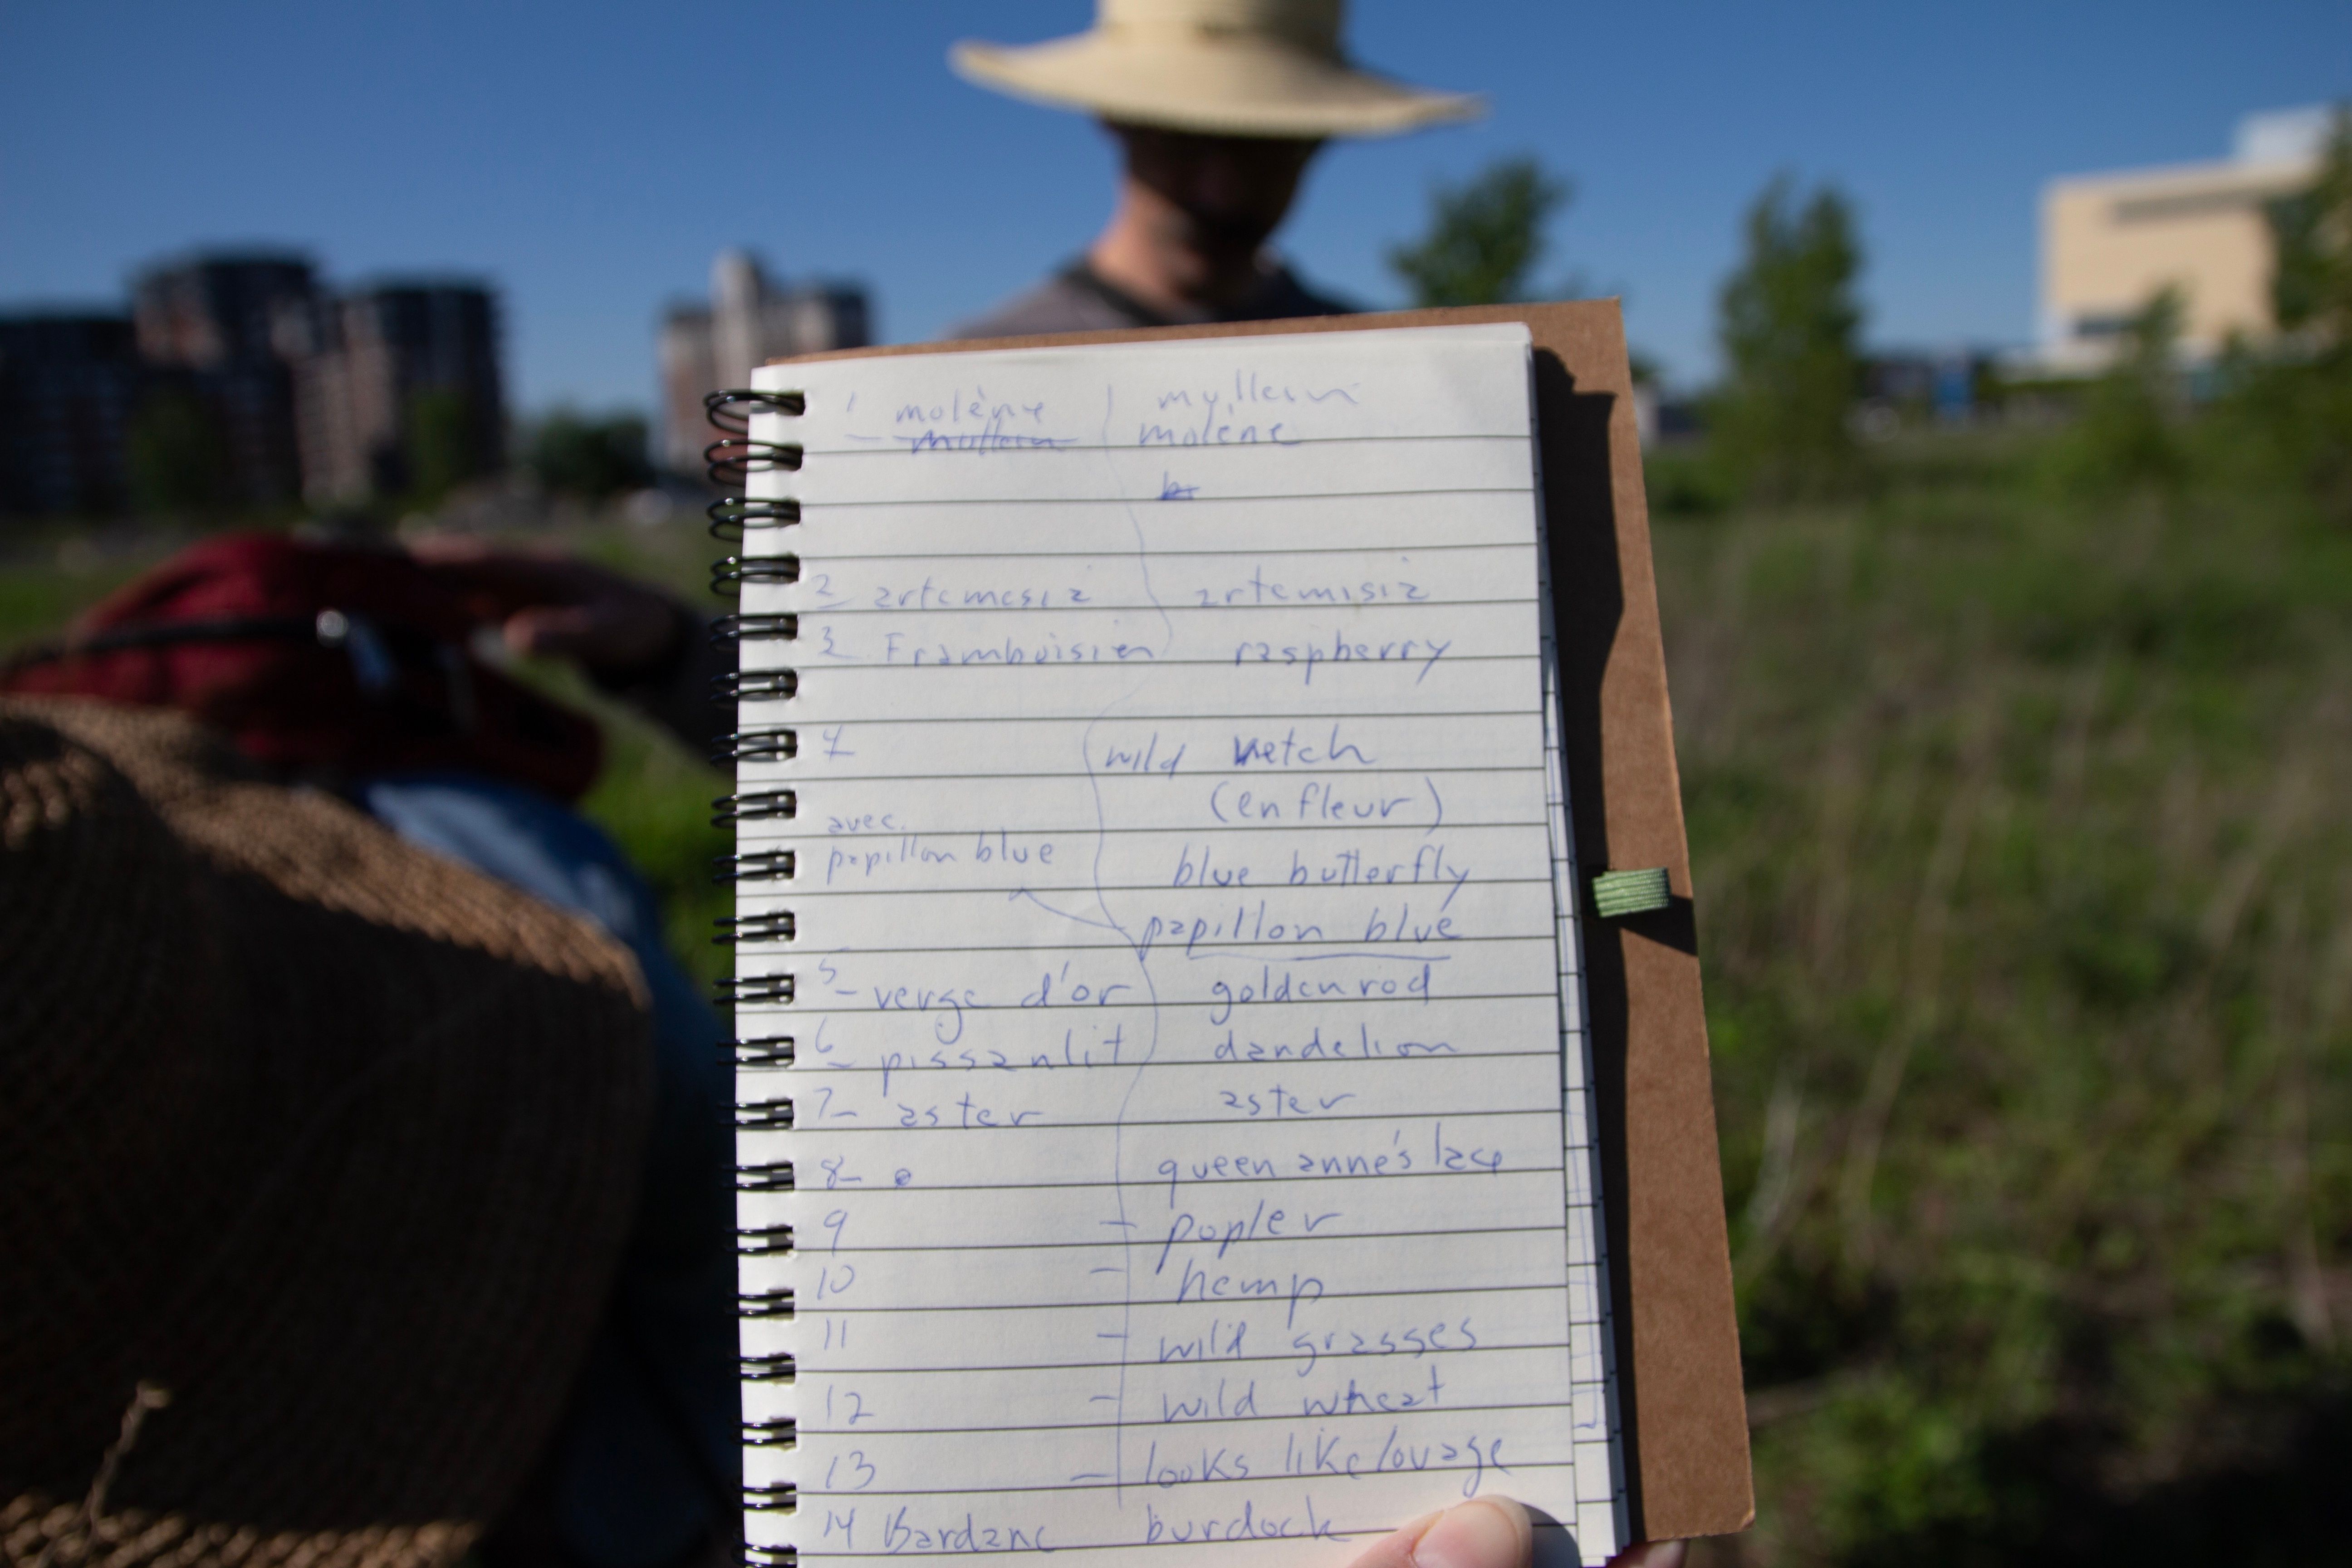 1 molène mullein
mullein molène
2 artemesia artemisia
3 Framboisien raspberry
4 wild vetch
(en fleur)
avec
papillon blue blue butterfly
papillon blue
5- verge d'or goldenrod
6- pissanlit dandelion
7- aster aster
8- queen anne's lace
9 - popler
10 - hemp
11 - wild grasses
12 - wild wheat
13 - looks like lovage
14 Bardane burdock